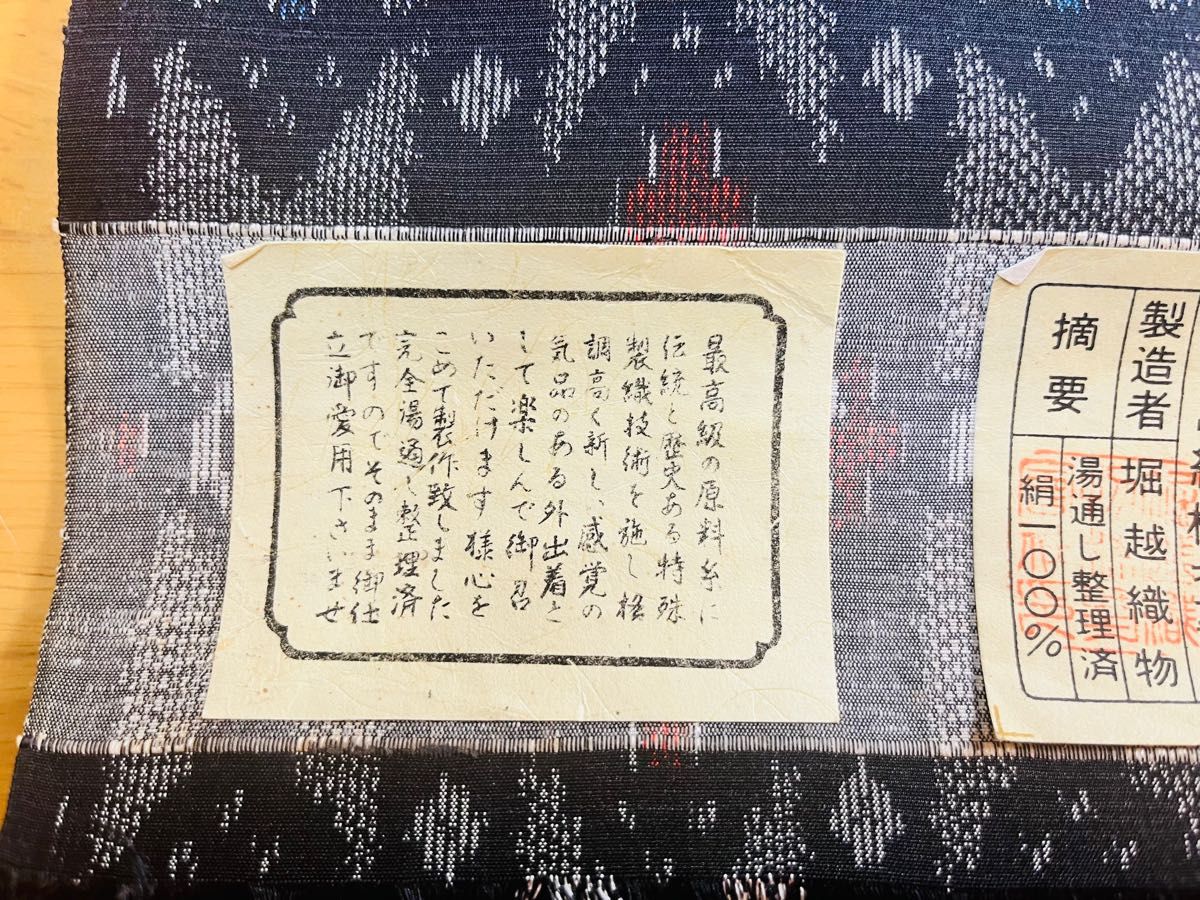 製造者 堀越織物
摘要 湯通し整理済
絹一〇〇%
最高級の原料糸に
伝統と歴史ある特殊
製織技術を施し格
調高く新しい感覚の
気品のある外出着と
して楽しんで御召
いただけます様心を
こめて製作致しました
完全湯通し整理済
ですのでそのまま御仕
立御愛用下さいませ